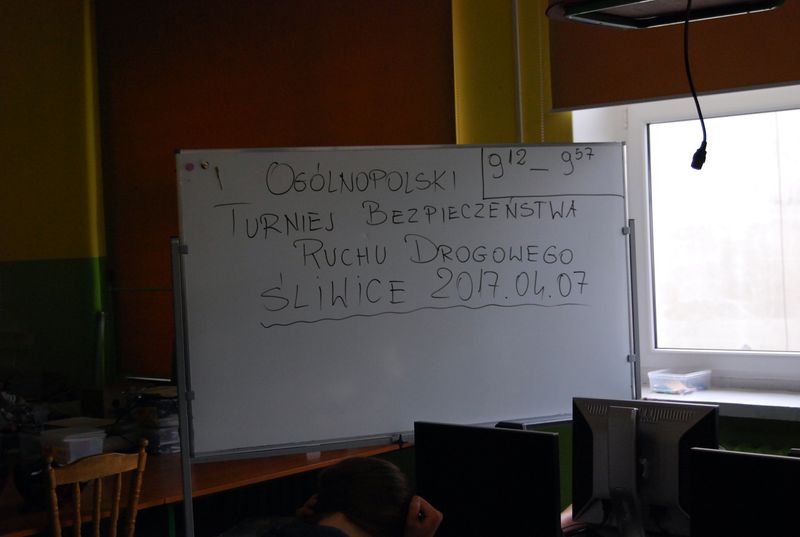 OGÓLNOPOLSKI
9¹² – 9⁵⁷
TURNIEJ BEZPIECZEŃSTWA
RUCHU DROGOWEGO
ŚLIWICE 2017.04.07